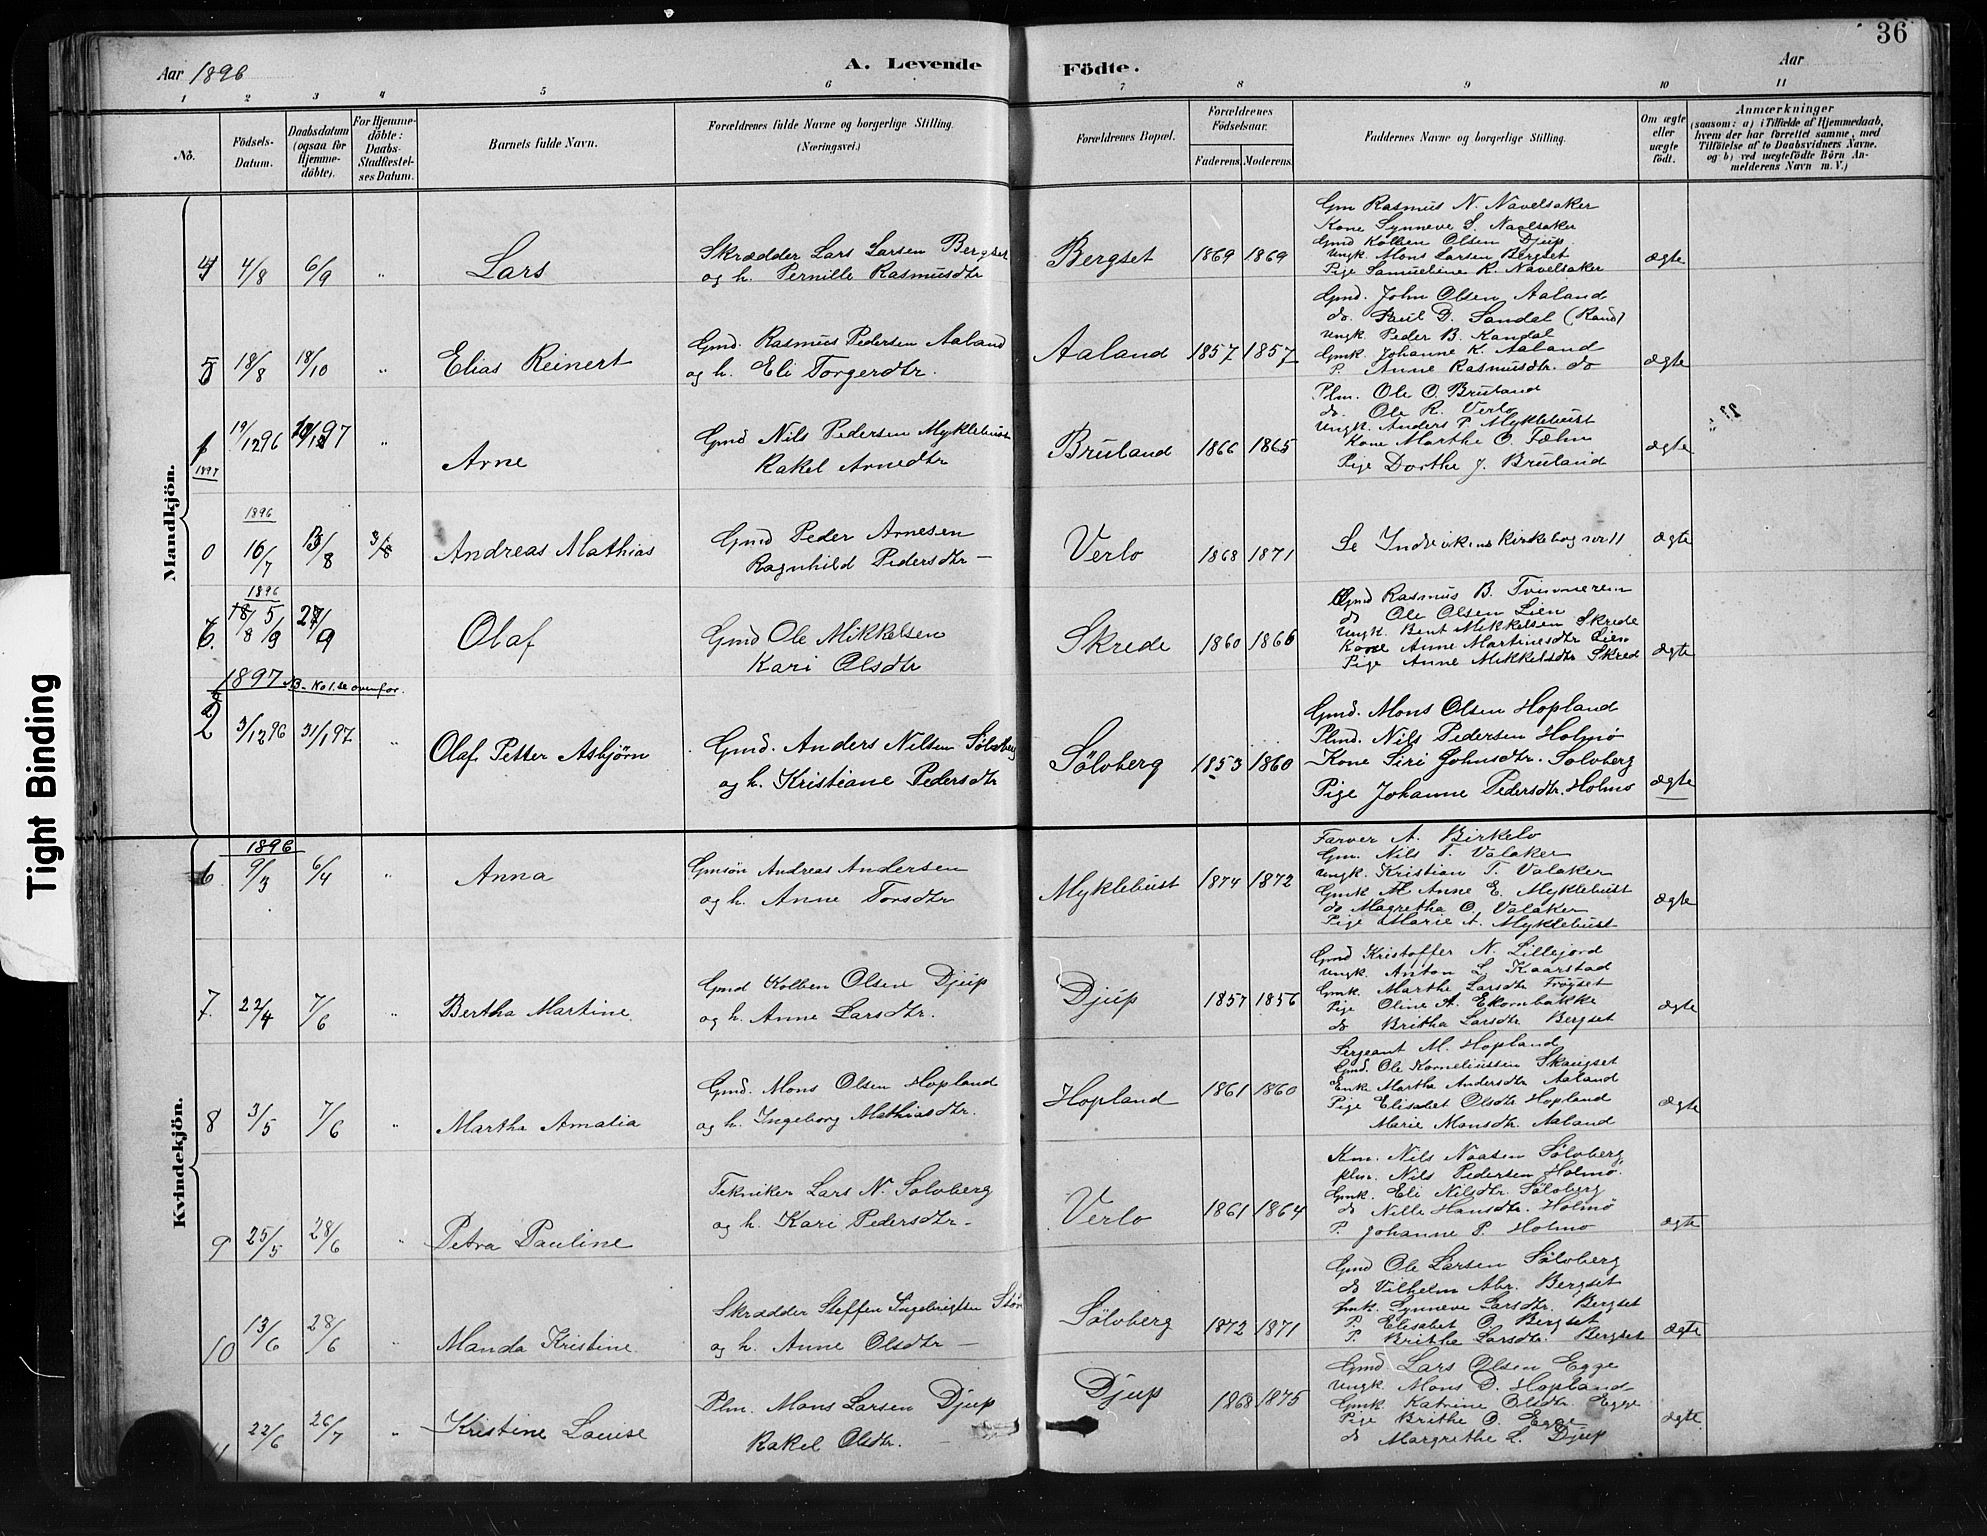 36
Aar 1896
A. Levende Födte.
Aar
1 2 3 4 5 6 7 8 9 10 11
No.
Födsels-Datum.
Daabsdatum (ogsaa for Hjemme-döbte).
For Hjemme-döbte: Daabs-Stadfæstel-ses Datum.
Barnets fulde Navn.
Forældrenes fulde Navne og borgerlige Stilling.
(Næringsvei.)
Forældrenes Bopæl.
Forældrenes Födselsaar.
Faderens. Moderens.
Faddernes Navne og borgerlige Stilling.
Om ægte eller uægte födt.
Anmærkninger
(saasom: a) i Tilfælde af Hjemmedaab,
hvem der har forrettet samme, med
Tilföielse af to Daabsvidners Navne,
og b) ved uægtefödte Börn An-
melderens Navn m. V.)
Mandkjön.
4 4/8 6/9 " Lars
Skrædder Lars Larsen Bergset
og h. Pernille Rasmusdtr
Bergset 1869 1869
Gm Rasmus N. Navelsaker
Kone Synneve S. Navelsaker
Gmd Kolben Olsen Djup
Ungk. Mons Larsen Bergset
Pige Samueline R. Navelsaker
ægte
5 18/8 18/10 " Elias Reinert
Gmd. Rasmus Pedersen Aaland
og h. Eli Torgerdtr.
Aaland 1857 1857
Gmd. John Olsen Aaland
do Paul D. Sandal (Rand)
Ungk Peder B. Kandal
Gmk. Johanne K. Aaland
P. Anne Rasmusdtr. do
ægte
1 1897 19/12 96 97 " Arne
Gmd Nils Pedersen Myklebust
Rakel Arnedtr
Bruland 1866 1865
Plm. Ole O. Bruland
do. Ole R. Verlo
Ungk. Anders P. Myklebust
Kone Marthe O. Fælm
Pige Dorthe J. Bruland
ægte
1896
0 16/7 13/8 Andreas Mathias
Gmd Peder Arnesen
Ragnhild Pedersdtr —
Verlo 1868 1871
Se Indvikens kirkebog nr 11
ægte
1896
6. 27/9 Olaf
Gmd Ole Mikkelsen
Kari Olsdtr
Skrede 1860 1866
Gmd Rasmus B. Tvinnerein
do Ole Olsen Lien
Ungk. Bent Mikkelsen Skrede
Kone Anne Martinesdtr Lien
Pige Anne Mikkelsdtr Skrede
ægte
1897 NB. No 1. se ovenfor.
2 3/12 96 31/1 97 " Olaf Petter Asbjørn
Gmd. Anders Nilsen Sølvberg
og h. Kristiane Pedersdtr
Sølvberg 1853 1860
Gmd. Mons Olsen Hopland
Plmd. Nils Pedersen Holmø
Kone Siri Johnsdtr. Solvberg
Pige Johanne Pedersdtr. Holmø
ægte
Kvindekjön.
1896
6 9/3 6/4 " Anna
Gmsön Andreas Andersen
og h. Anne Torsdtr
Myklebust 1874 1872
Farver A. Birkelo
Gm. Nils T. Valaker
Ungk. Kristian T. Valaker
Gmk Anne E. Myklebust
do Magretha O. Valaker
Pige Marie A. Myklebust
ægte
7. 22/4 7/6 " Bertha Martine
Gmd Kolben Olsen Djup
og h. Anne Larsdtr.
Djup 1857 1856
Gmd Kristoffer N. Lillejord
Ungk. Anton L. Kaarstad
Gmk. Marthe Larsdtr Frøyset
Pige Oline A. Ekornbakke
do Brithe Larsdtr Bergset
ægte
8 3/5 7/6 " Martha Amalia
Gmd. Mons Olsen Hopland
og h. Ingeborg Mathiasdtr.
Hopland 1861 1860
Sergeant M. Hopland
Gmd. Ole Korneliussen Skaugset
Enke Martha Andersdtr Aaland
Pige Elisabet Olsdtr Hopland
Marie Monsdtr. Aaland
ægte
9 25/5 28/6 " Petra Pauline
Tekniker Lars N. Solvberg
og h. Kari Pedersdtr —
Verlo 1861 1864
Km. Nils Naasen Sølvberg
Plm. Nils Pedersen Holmø
Gmk. Eli Nilsdtr Sølvberg
do Nille Hansdtr. Holmø
P. Johanne P. Holmø
ægte
10 13/6 28/6 " Manda Kristine
Skrædder Steffen Ingebrigtsen
og h. Anne Olsdtr —
Sölvberg 1872 1871
Gmd Ole Larsen Sølvberg
do Vilhelm Abr. Bergset
Gmk. Synneve Larsdtr. Bergset
P. Elisabet O. Bergset
P. Brithe Larsdtr. Bergset
ægte
11 22/6 26/7 " Kristine Louise
Plm. Mons Larsen Djup
Rakel Olsdtr. —
Djup 1868 1875
Gmd Lars Olsen Egge
Ungk. Mons D. Hopland
Gmk Katrine Olsdtr Egge
Pige Brithe O. Egge
do Margrethe L. Djup
ægte
Tight Binding